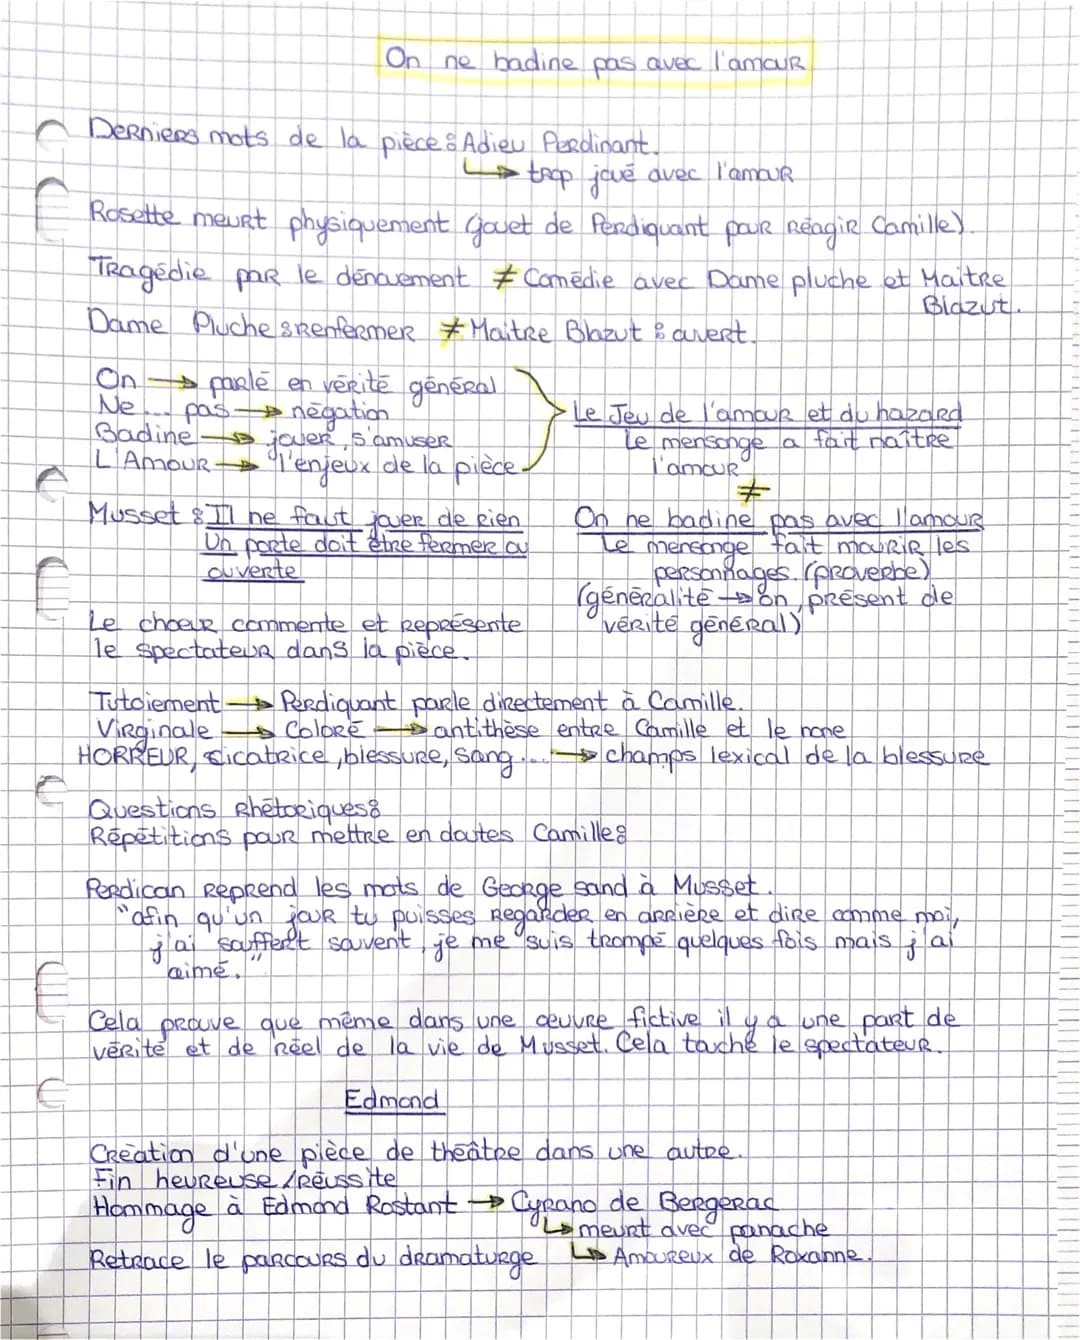 On ne badine pas avec l'amour
Derniers mots de la pièce : Adieu Perdinant.
↳ trop joué avec l'amour
Rosette meurt physiquement (jouet de Perdiquant pour réagir Camille).
Tragédie par le dénouement ≠ Comédie avec Dame pluche et Maitre
Blazut.
Dame Pluche : Renfermer ≠ Maitre Blazut : ouvert.
On → parlé en vérité général
Ne ... pas → négation
Badine → jouer, s'amuser
L'Amour → l'enjeux de la pièce.
Le Jeu de l'amour et du hazard
Le mensonge a fait naître
l'amour
≠
On ne badine pas avec l'amour
Le mensonge fait mourir les
personnages. (proverbe)
(généralité → on, présent de
vérité général)
Musset : Il ne faut jouer de rien
Un porte doit être fermer ou
ouverte
Le choeur commente et représente
le spectateur dans la pièce.
Tutoiement → Perdiquant parle directement à Camille.
Virginale → Coloré → antithèse entre Camille et le none
HORREUR, cicatrice, blessure, sang... → champs lexical de la blessure
Questions Rhétoriques :
Répétitions pour mettre en doutes Camille :
Perdican reprend les mots de George sand à Musset.
"afin qu'un jour tu puisses regarder en arrière et dire comme moi,
j'ai souffert souvent, je me suis trompé quelques fois mais j'ai
aimé."
Cela prouve que même dans une oeuvre fictive il y a une part de
vérité et de réel de la vie de Musset. Cela touche le spectateur.
Edmond
Création d'une pièce de théâtre dans une autre.
Fin heureuse / réussite
Hommage à Edmond Rostant → Cyrano de Bergerac
↳ meurt avec panache
Retrace le parcours du dramaturge ↳ Amoureux de Roxanne.